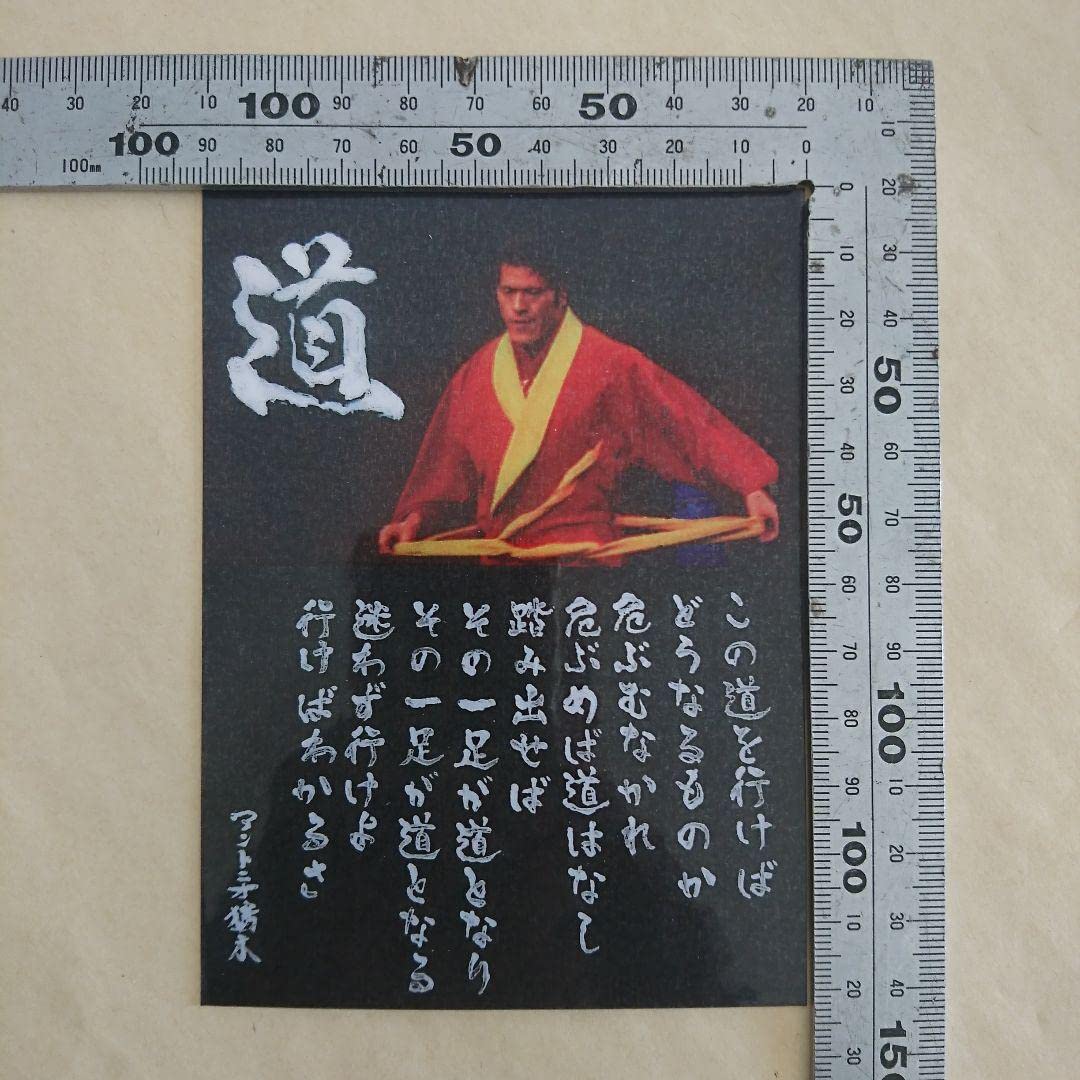 40 30 20 10 100 90 80 70 60 50 40 30 20 10
100 90 80 70 60 50 40 30 20 10 0
100mm
0 10 20 30 40 50 60 70 80 90 100 10 20 30
10 20 30 40 50 60 70 80 90 100 10 20 30 40 150
道
この道を行けば
どうなるものか
危ぶむなかれ
危ぶめば道はなし
踏み出せば
その一足が道となり
その一足が道となる
迷わず行けよ
行けばわかるさ
アントニオ猪木